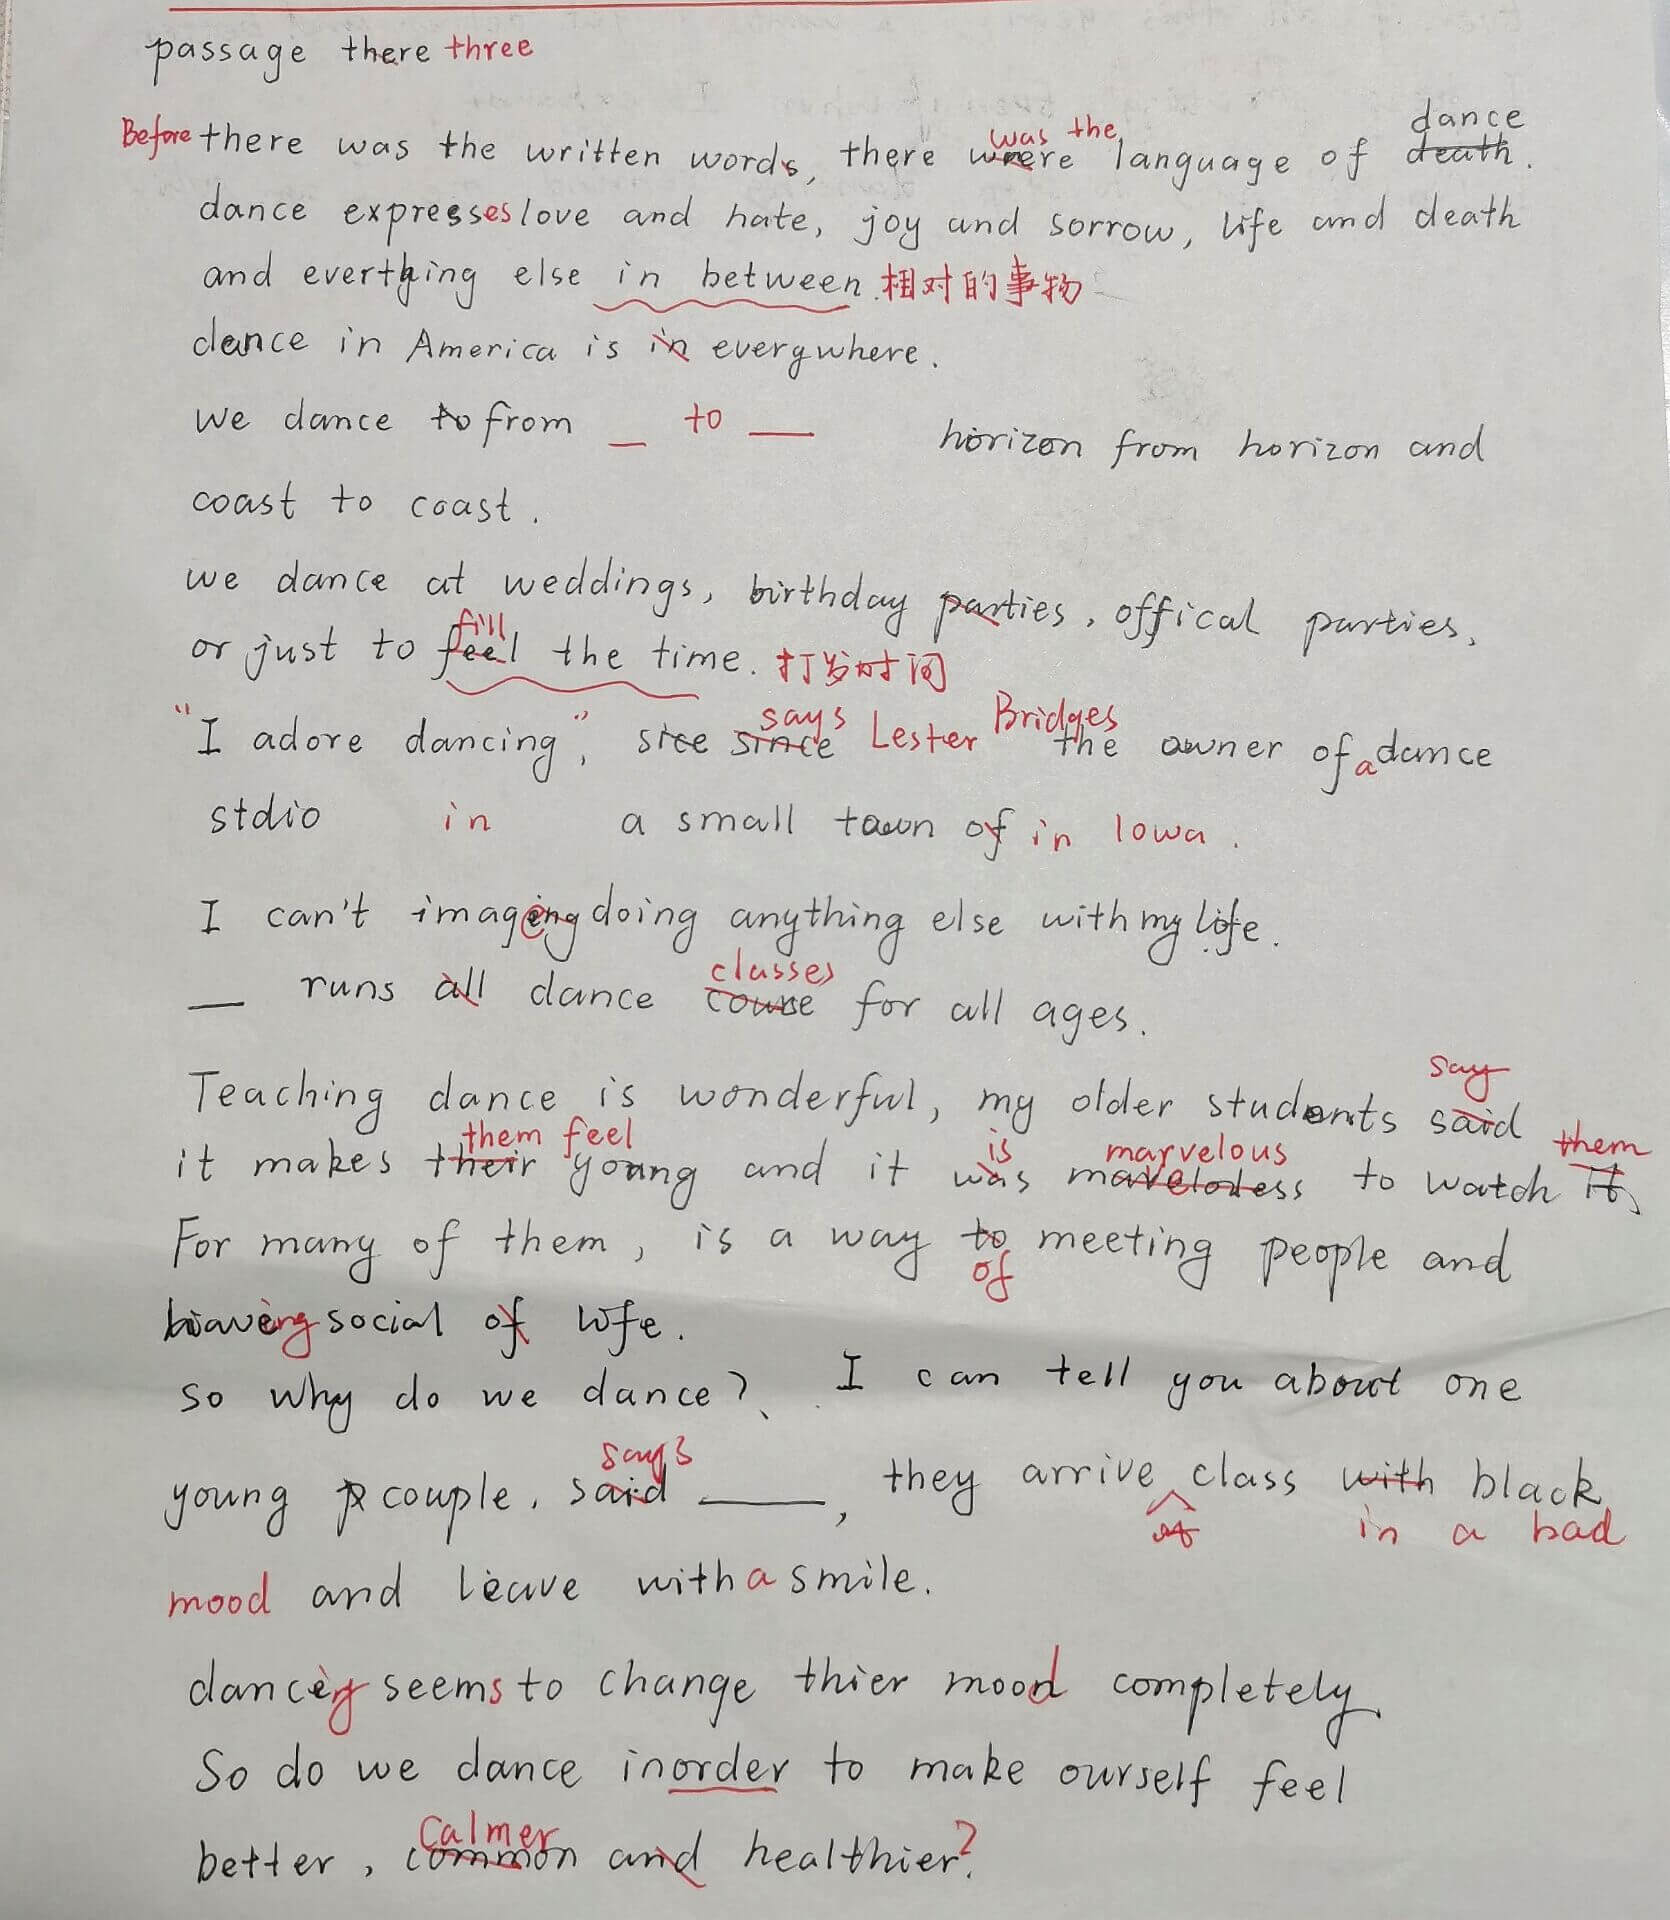 passage there three
Before there was the written words, there were was the language of death dance.
dance expresses love and hate, joy and sorrow, life and death
and everthing else in between. 相对的事物
dance in America is in everywhere.
We dance to from _ to __ horizon from horizon and
coast to coast.
we dance at weddings, birthday parties, offical parties,
or just to feel fill the time. 打发时间
"I adore dancing," sice since says Lester Bridges the owner of a dance
stdio in a small town of in Iowa.
I can't imageing doing anything else with my life.
__ runs all dance course classes for all ages.
Teaching dance is wonderful, my older students said say
it makes their them feel young and it was is marvelous to watch it, them
For many of them, is a way to of meeting people and
having social of life.
so why do we dance? I can tell you about one
young couple. said says ____, they arrive class with black
in a bad
mood and leave with a smile.
dancing seems to change thier mood completely
So do we dance inorder to make ourself feel
better, common Calmer and healthier?